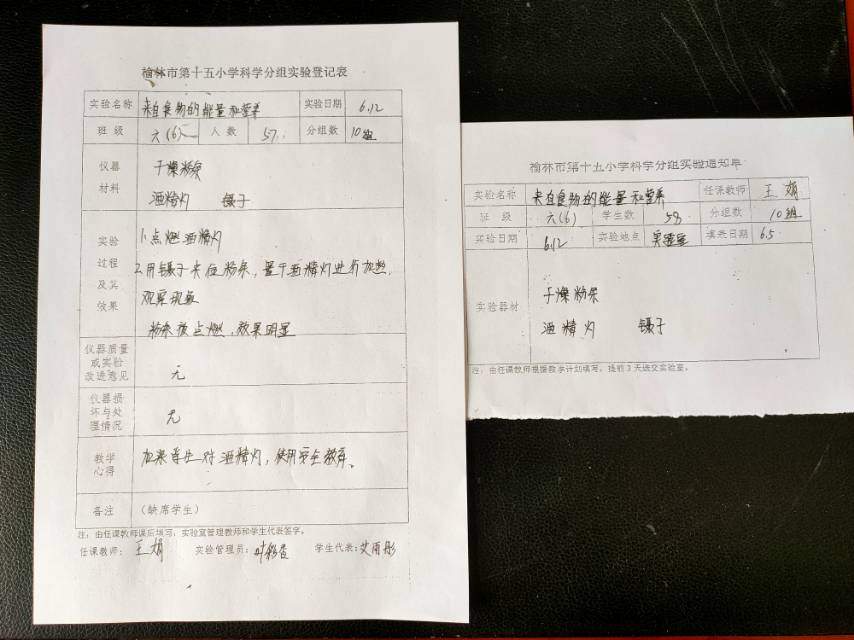 榆林市第十五小学科学分组实验登记表
实验名称 来自食物的能量和营养 实验日期 6.12
班 级 六(6) 人 数 57 分组数 10组
仪器
材料
干燥粉条
酒精灯 镊子
实验
过程
及其
效果
1、点燃酒精灯
2.用镊子夹住粉条，置于酒精灯进行加热，
观察现象
粉条被点燃，效果明显
仪器质量
或实验
改进意见
无
仪器损
坏与处
理情况
无
教学
心得
加强学生对酒精灯，使用安全教育、
备注 (缺席学生)
注：由任课教师课后填写，实验室管理教师和学生代表签字。
任课教师：王娟 实验管理员：叶彩香 学生代表：艾雨彤
榆林市第十五小学科学分组实验通知单
实验名称 来自食物的能量和营养 任课教师 王娟
班 级 六(6) 学生数 58 分组数 10组
实验日期 6.12 实验地点 实验室 填表日期 6.5
实验器材
干燥粉条
酒精灯 镊子
注：由任课教师根据教学计划填写，提前3天送交实验室。